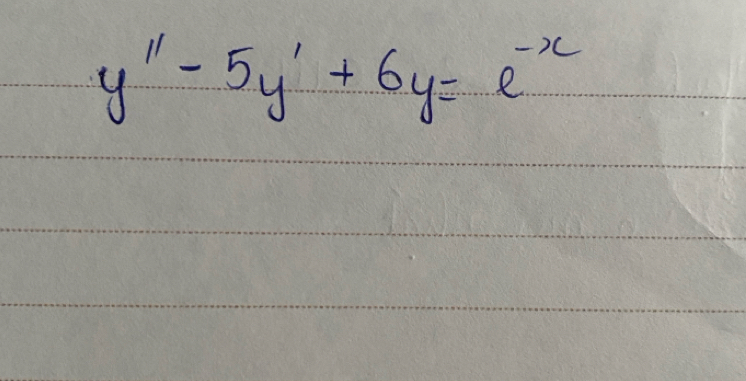 y'' - 5y' + 6y = e^{-x}